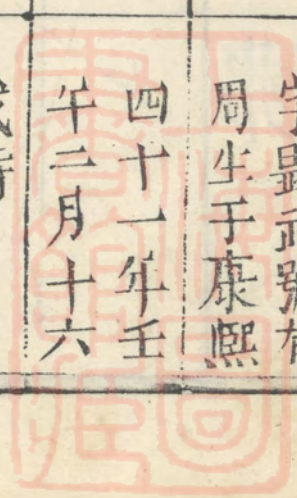 字顯武號有
周生于康熙
四十一年壬
午二月十六